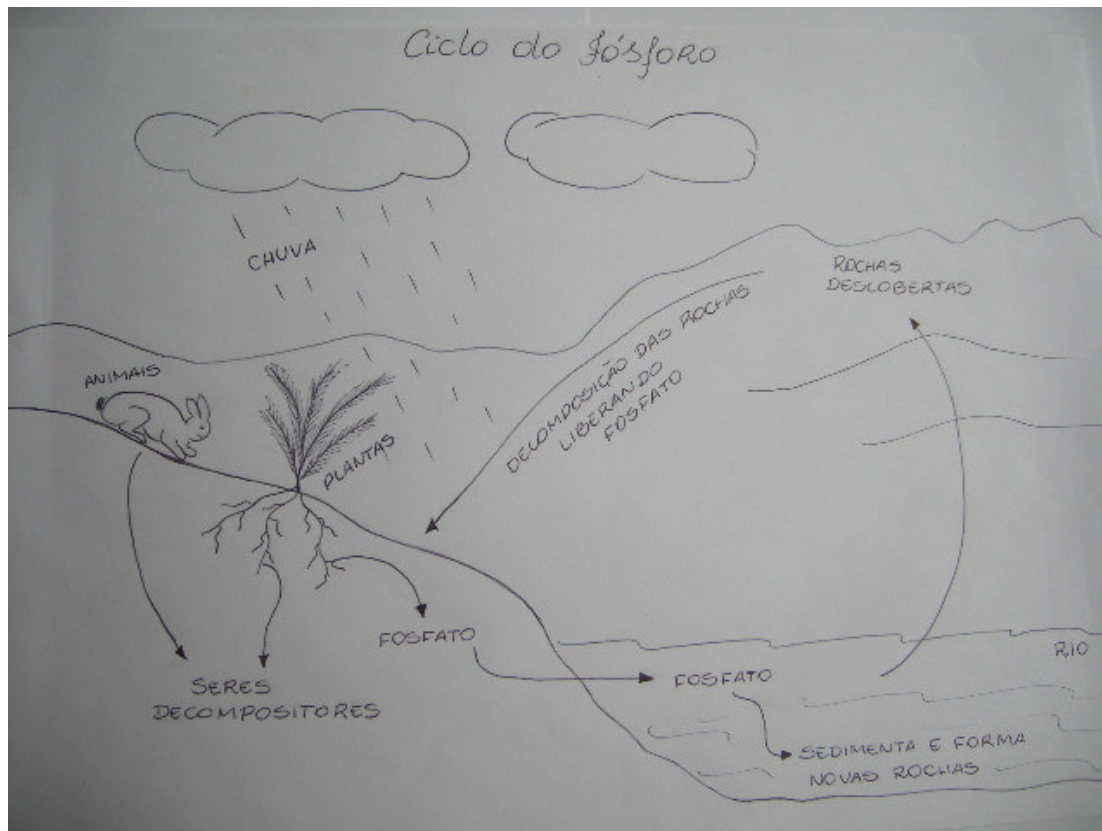 Ciclo do fósforo
CHUVA
ROCHAS
DESCOBERTAS
ANIMAIS
PLANTAS
DECOMPOSIÇÃO DAS ROCHAS
LIBERANDO
FOSFATO
FOSFATO
SERES
DECOMPOSITORES
RIO
FOSFATO
SEDIMENTA E FORMA
NOVAS ROCHAS